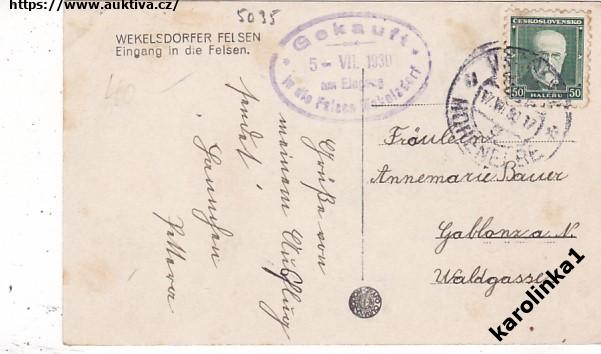 https://www.auktiva.cz/
5035
WEKELSDORFER FELSEN
Eingang in die Felsen.
Gekauft
5 - VII. 1930
am Eingang
in die Felsen Wekelsdorf
ČESKOSLOVENSKO
50 50
HALÉŘŮ
HOHENELBE
Grüße von
meinem Ausflug
sendet
Fräulein
Annemarie Bauer
Gablonz a. N.
Waldgasse
karolinka1